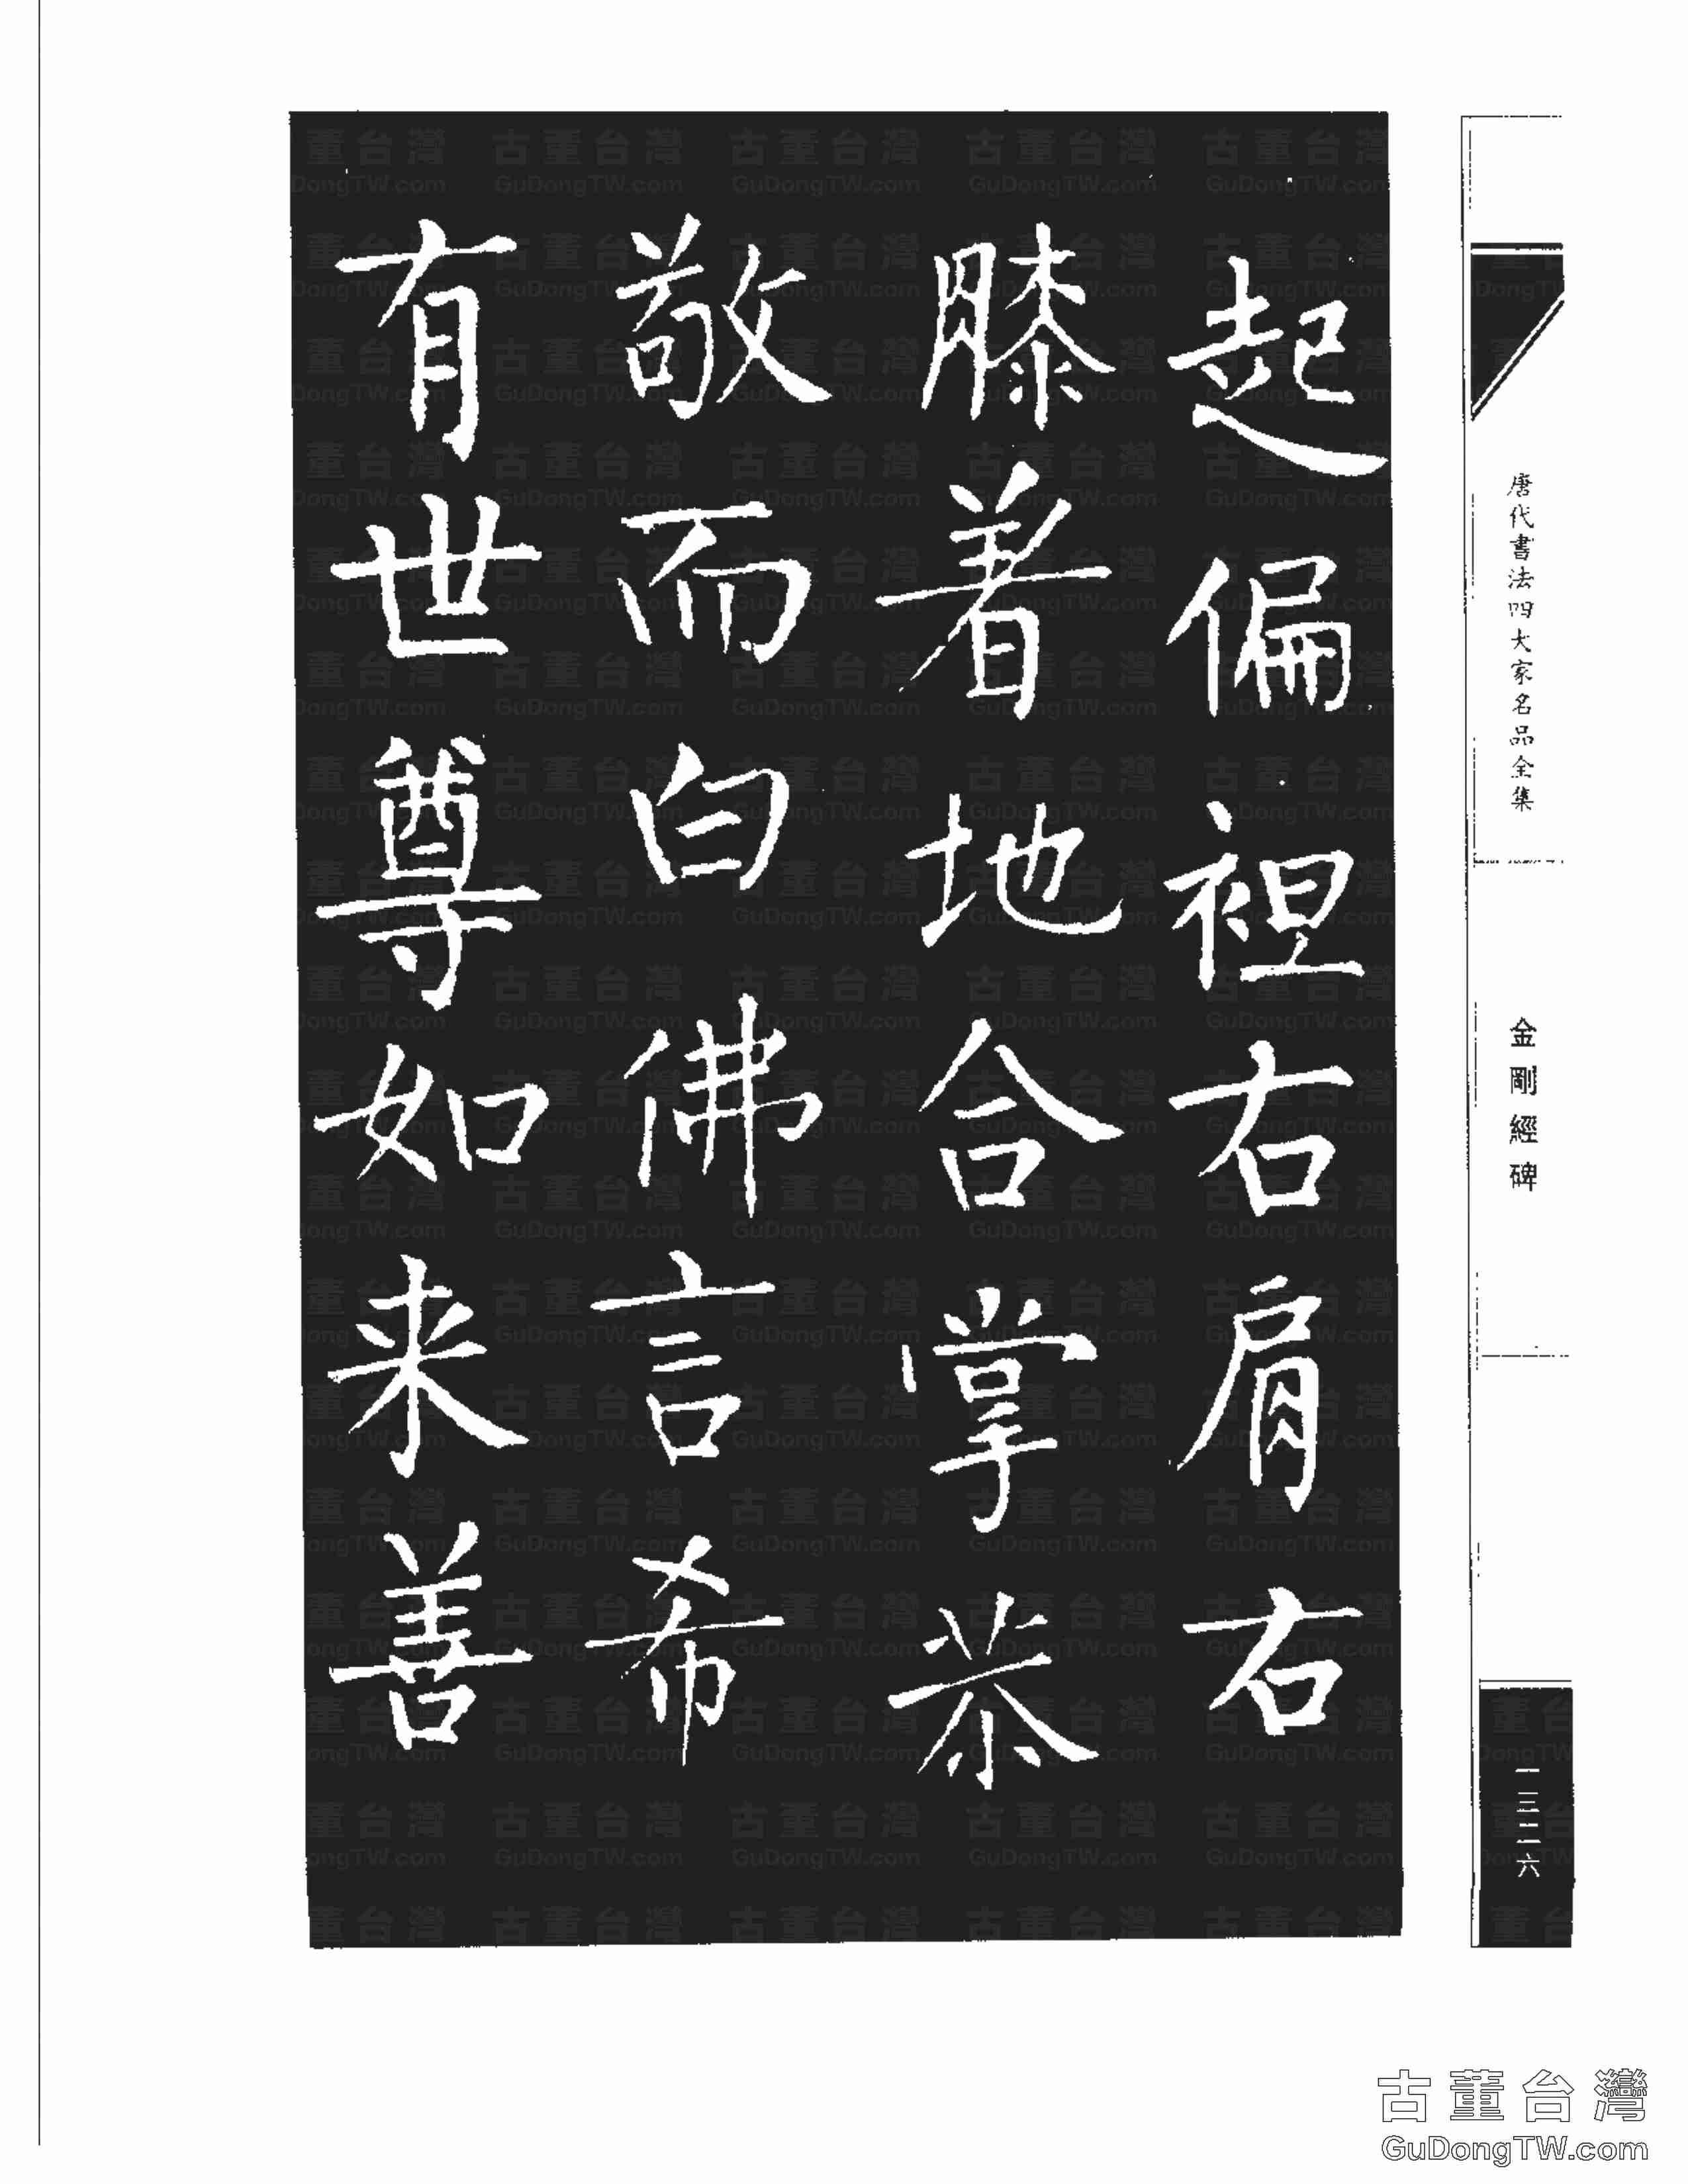 起偏袒右肩右
膝着地合掌恭
敬而白佛言希
有世尊如来善
唐代書法四大家名品全集
金剛經碑
一三二六
古董台灣
GuDongTW.com